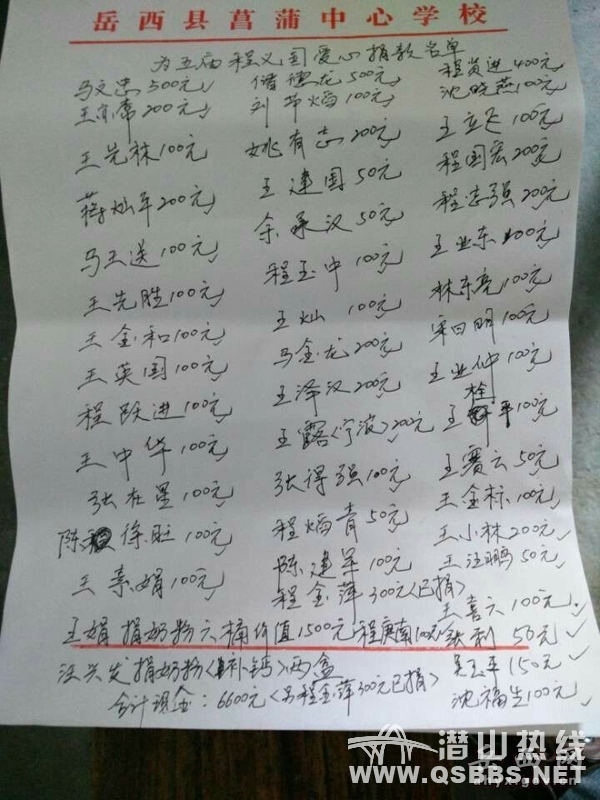 岳西县菖蒲中心学校
为五届程义国爱心捐款名单
马文忠500元 储德龙500元 程贤进400元
王完席200元 刘节焰100元 沈晓燕100元
王先林100元 姚有志200元 王立飞100元
蒋灿军200元 王建国50元 程国宏200元
马王送100元 余承汉50元 程志强200元
王先胜100元 程玉中100元 王业东200元
王金和100元 王灿100元 林东亮100元
王英国100元 马金龙200元 宋日明100元
程跃进100元 王泽汉200元 王业仲100元
王中华100元 王露(宁波)200元 王栓平100元
张在星100元 张得强100元 王赛云50元
陈徐旺100元 程焰青50元 王金标100元
王素娟100元 陈建军100元 王小林200元
程金萍300元(已捐) 王汪鹏50元
王喜六100元
王娟捐奶粉六桶价值1500元 程庚南100元 利50元
汪兴发捐奶粉(补钙)两盒 吴玉平150元
合计现金:6600元(另程金萍300元已捐) 沈福生100元
潜山热线
WWW.QSBBS.NET